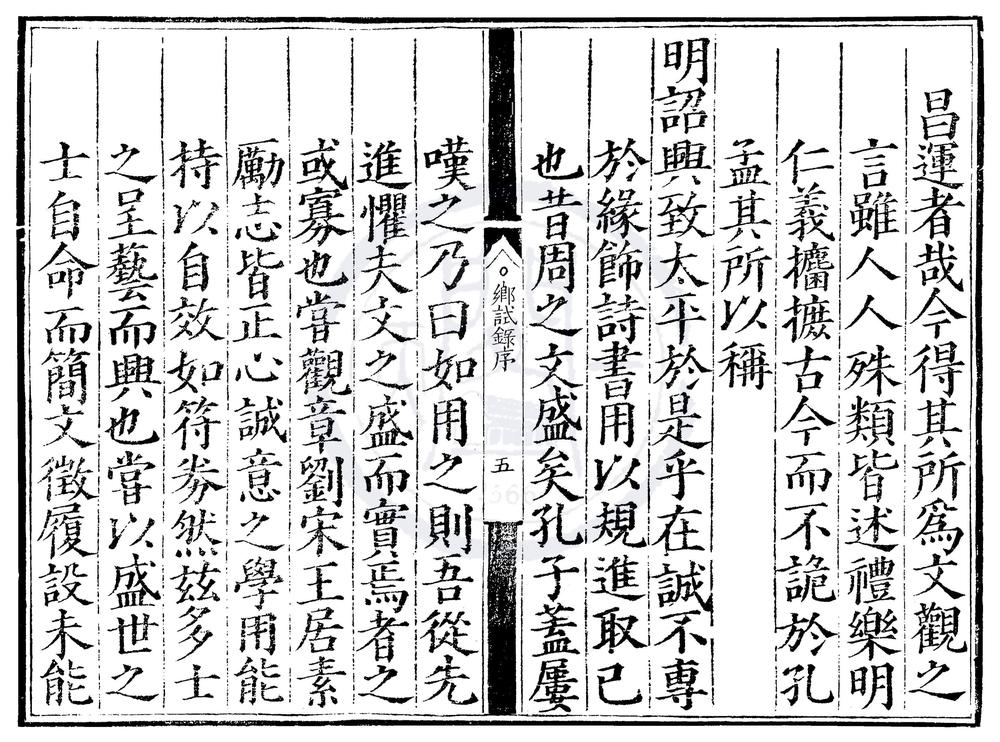 昌運者哉今得其所爲文觀之
言雖人人殊類皆述禮樂明
仁義攟摭古今而不詭於孔
孟其所以稱
明詔興致太平於是乎在誠不專
於緣飾詩書用以規進取已
也昔周之文盛矣孔子蓋屢
鄉試錄序
五
嘆之乃曰如用之則吾從先
進懼夫文之盛而實焉者之
或寡也嘗觀章劉宋王居素
勵志皆正心誠意之學用能
持以自效如符券然茲多士
之呈藝而興也嘗以盛世之
士自命而簡文徵履設未能